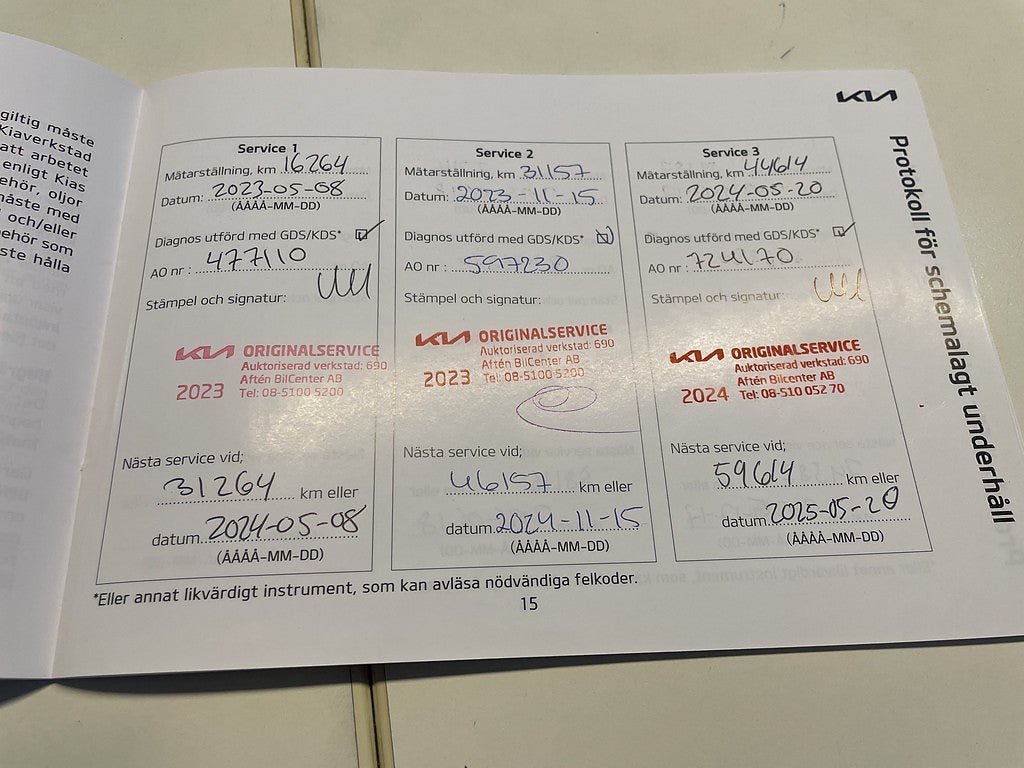 giltig måste
Kiaverkstad
att arbetet
enligt Kias
ehör, oljor
måste med
och/eller
ehör som
ste hålla
KIA
Protokoll för schemalagt underhåll
Service 1
Mätarställning, km 16264
Datum: 2023-05-08
(ÅÅÅÅ-MM-DD)
Diagnos utförd med GDS/KDS*
AO nr : 477110
Stämpel och signatur:
KIA ORIGINALSERVICE
Auktoriserad verkstad: 690
Aftén BilCenter AB
2023 Tel: 08-5100 5200
Nästa service vid;
31264 km eller
datum 2024-05-08
(ÅÅÅÅ-MM-DD)
Service 2
Mätarställning, km 31157
Datum: 2023-11-15
(ÅÅÅÅ-MM-DD)
Diagnos utförd med GDS/KDS*
AO nr : 597230
Stämpel och signatur:
KIA ORIGINALSERVICE
Auktoriserad verkstad: 690
Aftén BilCenter AB
2023 Tel: 08-5100 5200
Nästa service vid;
46157 km eller
datum 2024-11-15
(ÅÅÅÅ-MM-DD)
Service 3
Mätarställning, km 44614
Datum: 2024-05-20
(ÅÅÅÅ-MM-DD)
Diagnos utförd med GDS/KDS*
AO nr : 724170
Stämpel och signatur:
KIA ORIGINALSERVICE
Auktoriserad verkstad: 690
Aftén Bilcenter AB
2024 Tel: 08-510 052 70
Nästa service vid;
59614 km eller
datum 2025-05-20
(ÅÅÅÅ-MM-DD)
*Eller annat likvärdigt instrument, som kan avläsa nödvändiga felkoder.
15